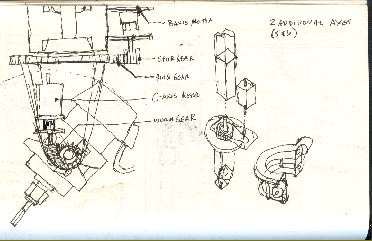 BASIS MOTOR
SPUR GEAR
RING GEAR
C-AXIS MOTOR
WORM GEAR
2 ADDITIONAL AXES